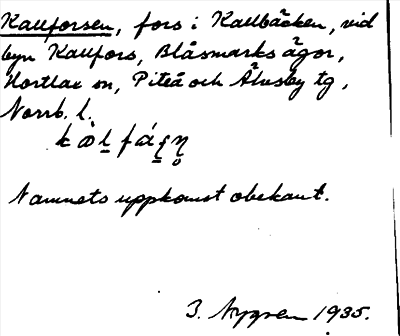 Kallforsen, fors i Kallbäcken, vid
byn Kallfors, Blåsmarks ägor,
Hortlax sn, Piteå och Älvsby tg,
Norrb. l.
Namnets uppkomst obekant.
J. Nygren 1935.